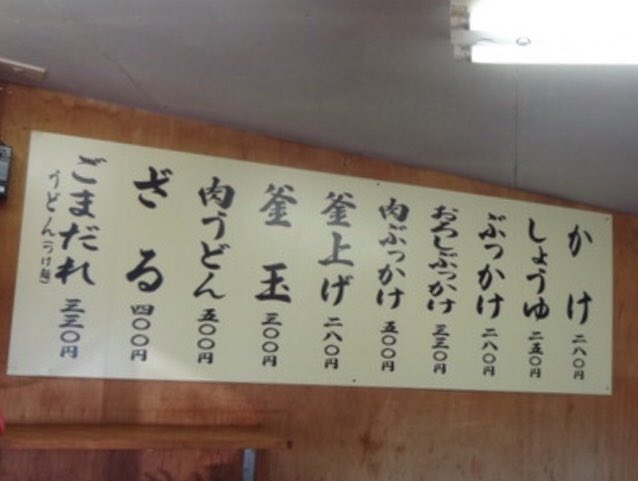 かけ 二八〇円
しょうゆ 二五〇円
ぶっかけ 二八〇円
おろしぶっかけ 三三〇円
肉ぶっかけ 五〇〇円
釜上げ 二八〇円
釜玉 三〇〇円
肉うどん 五〇〇円
ざる 四〇〇円
ごまだれ 三三〇円
うどん(つけ麺)